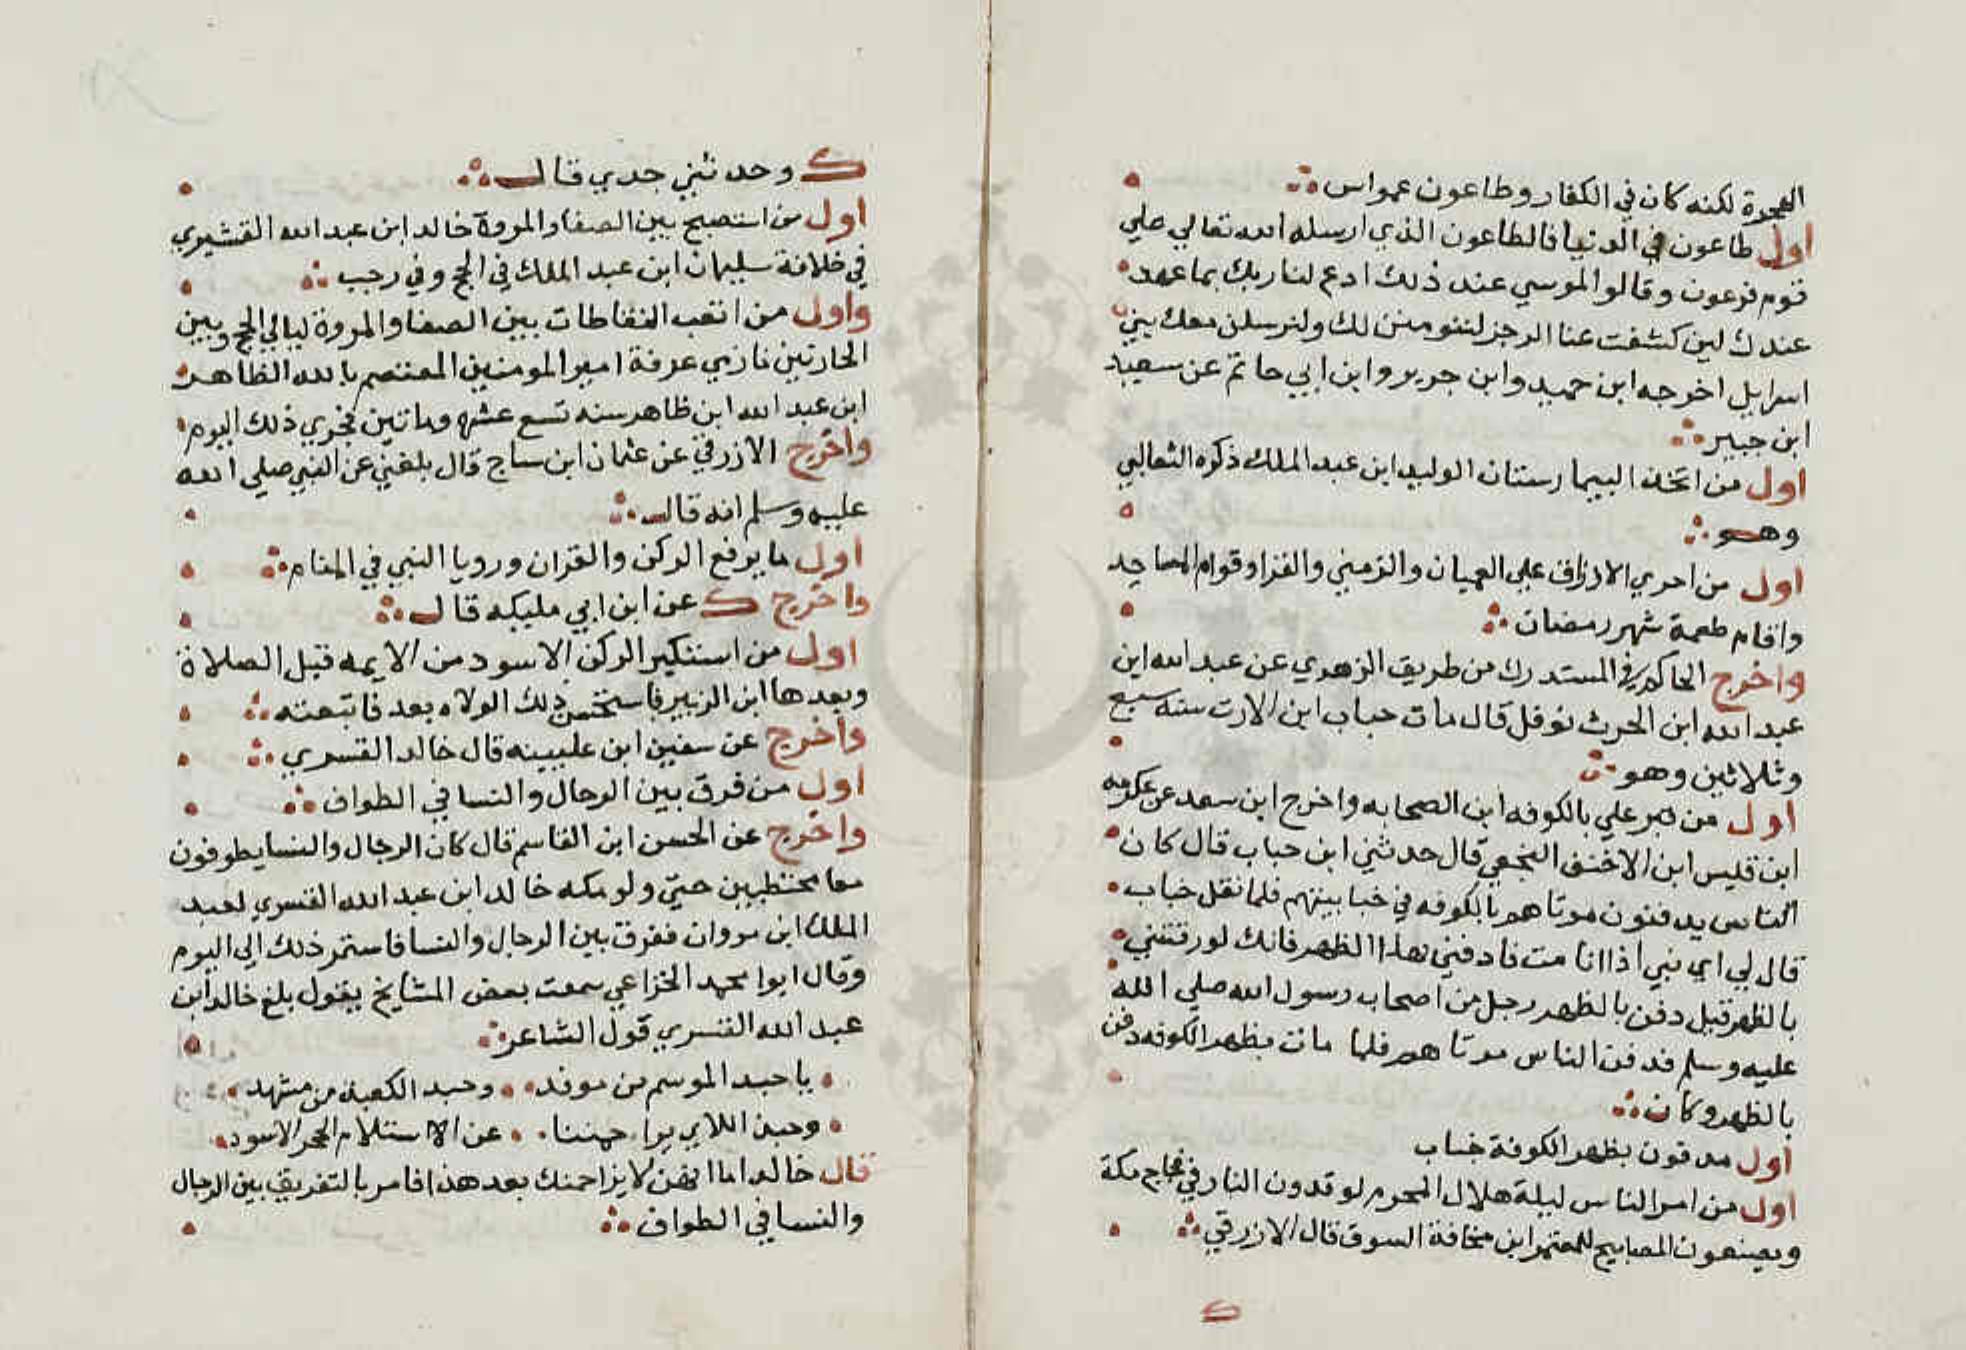 الهجرة لكنه كان في الكفار وطاعون عمواس
اول طاعون في الدنيا فالطاعون الذي ارسله الله تعالي علي
قوم فرعون وقالوا لموسي عند ذلك ادع لنا ربك بما عهد
عندك لين كشفت عنا الرجز لنومنن لك ولنرسلن معك بني
اسرايل اخرجه ابن حميد وابن جرير وابن ابي حاتم عن سعيد
ابن جبير
اول من اتخذ البيمارستان الوليد ابن عبد الملك ذكره الثعالبي
وهو
اول من اجري الارزاق علي العميان والزمني والفقرا وقوام المساجد
واقام طعمة شهر رمضان
واخرج الحاكم في المستدرك من طريق الزهري عن عبد الله ابن
عبد الله ابن الحرث نوفل قال مات خباب ابن الارت سنه سبع
وثلاثين وهو
اول من قبر علي بالكوفه ابن الصحابه واخرج ابن سعد عن عكرمه
ابن قليس ابن الاخنف النخعي قال حدثني ابن خباب قال كان
الناس يدفنون موتاهم بالكوفه في خبا بينهم فلما نقل خباب
قال لي اي بني اذا انا مت فادفني بهذا الظهر فانك لو رقتنني
بالظهر قيل دفن بالظهر رجل من اصحاب رسول الله صلي الله
عليه وسلم فدفن الناس موتاهم فلما مات بظهر الكوفه دفن
بالظهر وكان
اول مدفون بظهر الكوفة خباب
اول من امر الناس ليلة هلال المحرم لوقدون النار في فجاج مكة
ويصنعون المصابيح للمعتمر ابن مخافة السوق قال الازرقي
ك
ك وحدثني جدي قال
اول من استصبح بين الصفا والمروة خالد ابن عبد الله القشيري
في خلافة سليمان ابن عبد الملك في الحج وفي رجب
واول من اتعب النفاطات بين الصفا والمروة ليالي الحج وبين
الحارتين نازي عرفة امير المومنين المعتصم بالله الظاهر
ابن عبد الله ابن ظاهر سنه تسع عشر وماتين فجري ذلك اليوم
واخرج الازرقي عن عثمان ابن ساج قال بلغني عن النبي صلي الله
عليه وسلم انه قال
اول ما يرفع الركن والقران ورويا النبي في المنام
واخرج ك عن ابن ابي مليكه قال
اول من استنكير الركن الاسود من الايمه قبل الصلاة
وبعدها ابن الزبير فاستحسن ذلك الولاه بعد فاتبعته
واخرج عن سفين ابن عليينه قال خالد القسري
اول من فرق بين الرجال والنسا في الطواف
واخرج عن الحسن ابن القاسم قال كان الرجال والنسا يطوفون
معا مختطبين حتي ولو مكه خالد ابن عبد الله القسري لعبد
الملك ابن مروان ففرق بين الرجال والنسا فاستمر ذلك الي اليوم
وقال ابوا محمد الخزاعي سمعت بعض المشايخ يقول بلغ خالد ابن
عبد الله القسري قول الشاعر
يا حبد الموسم من موفد وحبد الكعبة من مشهد
وحبذ اللاي يزاحمننا عن الاستلام الحجر الاسود
قال خالد اما انهن لا يزاحمنك بعد هذا فامر بالتفريق بين الرجال
والنسا في الطواف